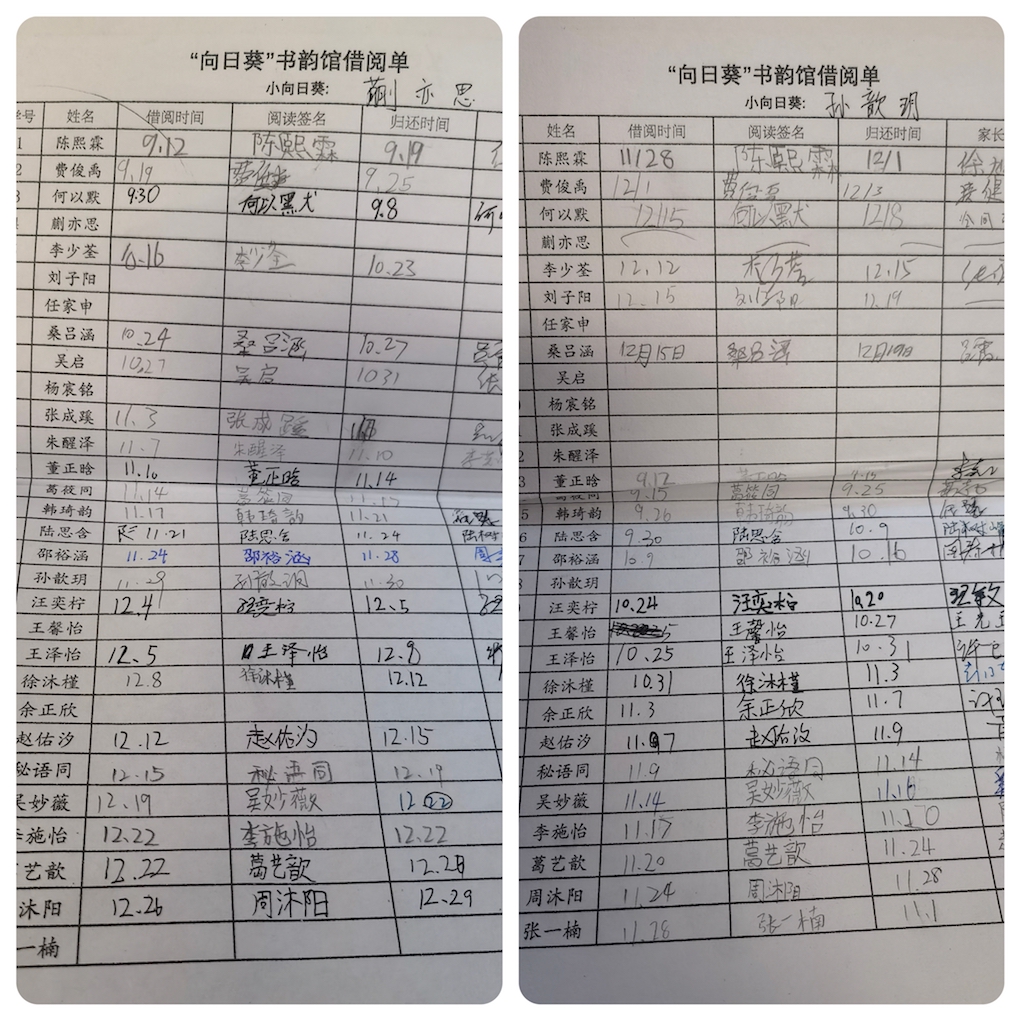 “向日葵”书韵馆借阅单
小向日葵: 蒯亦思
学号 姓名 借阅时间 阅读签名 归还时间
1 陈熙霖 9.12 陈熙霖 9.19
2 费俊禹 9.19 9.25
3 何以默 9.30 何以默 9.8 何
蒯亦思
李少荃 10.16 李少荃 10.23
刘子阳
任家申
桑吕涵 10.24 桑吕涵 10.27
吴启 10.27 吴启 10 31
杨宸铭
张成蹊 11.3 张成蹊
朱醒泽 11.7 朱醒泽 11.10
董正晗 11.10 董正晗 11.14
葛筱同 11.14 葛筱同 11.17
韩琦韵 11.17 韩琦韵 11.21
陆思含 11.21 陆思含 11.24
邵裕涵 11.24 邵裕涵 11.28
孙歆玥 11.29 11.30
汪奕柠 12.4 汪奕柠 12.5
王馨怡
王泽怡 12.5 王泽怡 12.8
徐沐槿 12.8 徐沐槿 12.12
余正欣
赵佑汐 12.12 赵佑汐 12.15
秘语同 12.15 秘语同 12.19
吴妙薇 12.19 吴妙薇 12.22
李施怡 12.22 李施怡 12.22
艺歆 12.22 葛艺歆 12.26
沐阳 12.26 周沐阳 12.29
一楠
“向日葵”书韵馆借阅单
小向日葵: 孙歆玥
姓名 借阅时间 阅读签名 归还时间 家长
陈熙霖 11/28 陈熙霖 12/1 徐
费俊禹 12/1 12/3
何以默 12/15 何以默 12/8
蒯亦思
李少荃 12.12 12.15
刘子阳 12.15 刘子阳 12.19
任家申
桑吕涵 12月15日 桑吕涵 12月19日
吴启
杨宸铭
张成蹊
2 朱醒泽
3 董正晗 9.12 董正晗 9.15
葛筱同 9.15 葛筱同 9.25
5 韩琦韵 9.26 韩琦韵 9.30
6 陆思含 9.30 陆思含 10.9
7 邵裕涵 10.9 邵裕涵 10.16
孙歆玥
汪奕柠 10.24 汪奕柠
王馨怡 王馨怡 10.27
王泽怡 10.25 王泽怡 10.31
徐沐槿 10.31 徐沐槿 11.3
余正欣 11.3 余正欣 11.7
赵佑汐 11.7 赵佑汐 11.9
秘语同 11.9 秘语同 11.14
吴妙薇 11.14 吴妙薇 11.16
李施怡 11.17 李施怡 11.20
葛艺歆 11.20 葛艺歆 11.24
周沐阳 11.24 周沐阳 11.28
张一楠 11.28 张一楠 11.1